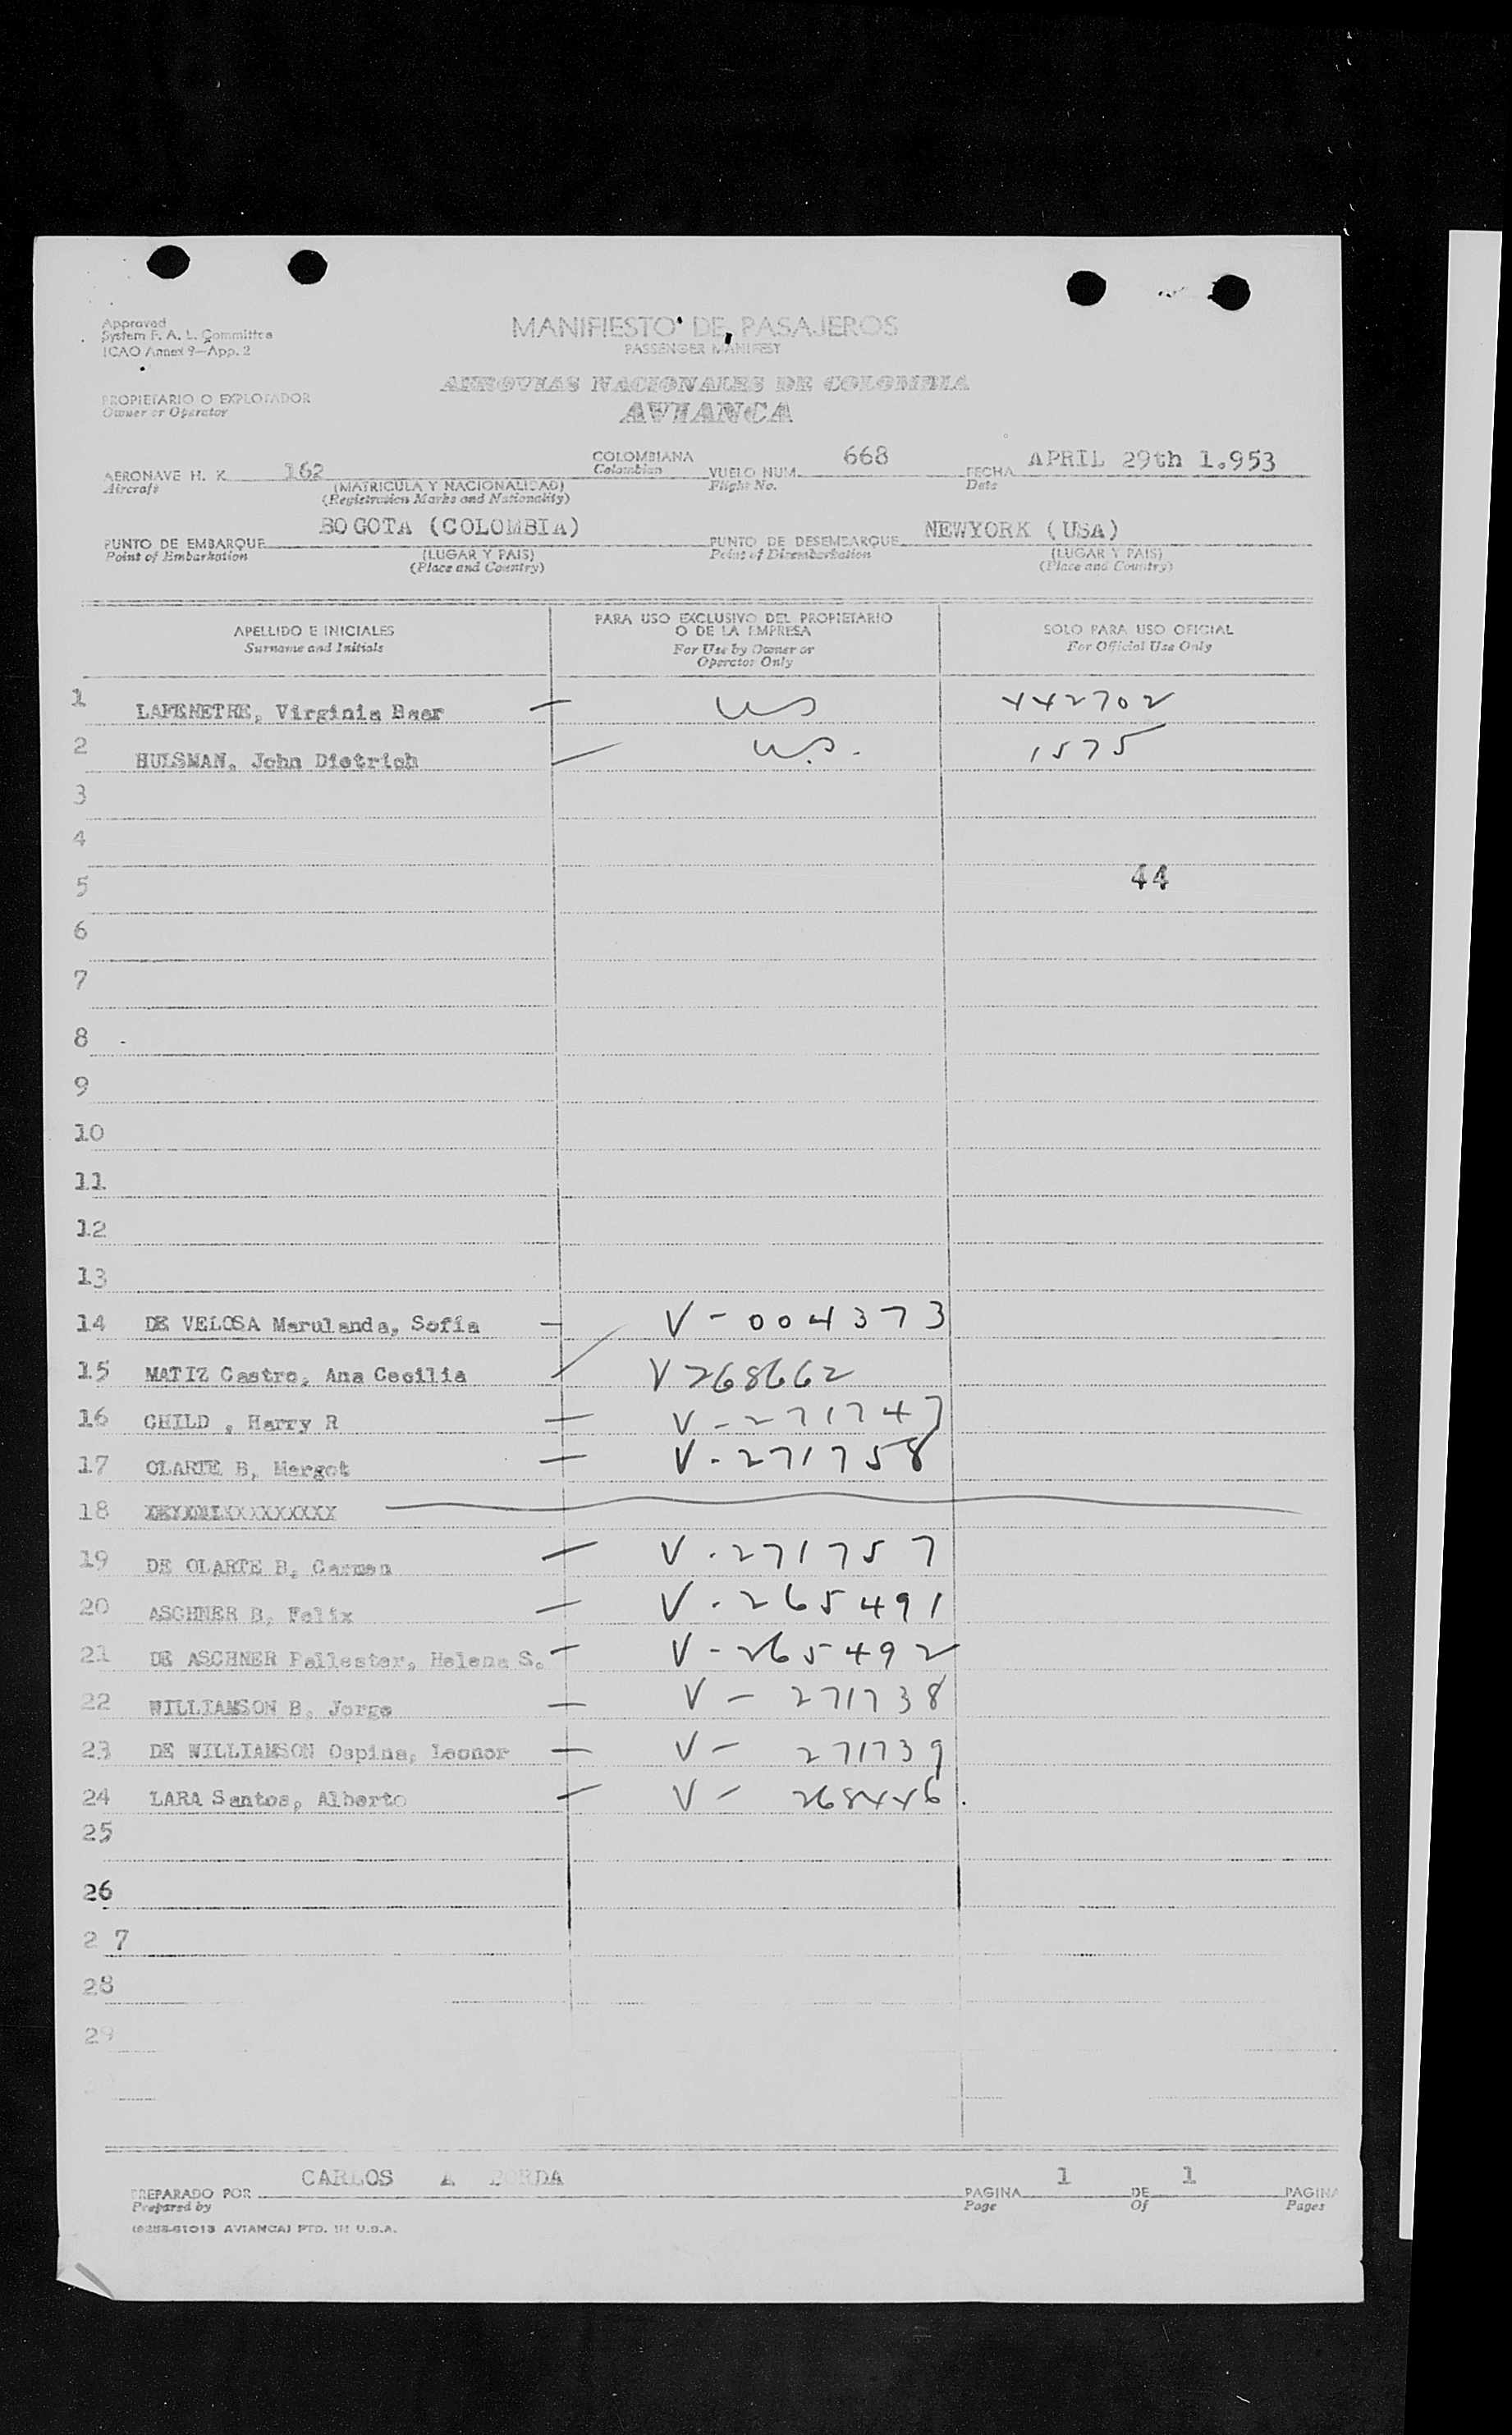 Approved
System F. A. L. Committee
ICAO Annex 9—App. 2
MANIFIESTO DE PASAJEROS
PASSENGER MANIFEST
PROPIETARIO O EXPLOTADOR
Owner or Operator
AEROVIAS NACIONALES DE COLOMBIA
AVIANCA
AERONAVE H. K 162 COLOMBIANA VUELO NUM. 668 FECHA APRIL 29th 1.953
Aircraft (MATRICULA Y NACIONALIDAD) Colombian Flight No. Date
(Registration Marks and Nationality)
PUNTO DE EMBARQUE BOGOTA (COLOMBIA) PUNTO DE DESEMBARQUE NEWYORK (USA)
Point of Embarkation (LUGAR Y PAIS) Point of Disembarkation (LUGAR Y PAIS)
(Place and Country) (Place and Country)
APELLIDO E INICIALES PARA USO EXCLUSIVO DEL PROPIETARIO O DE LA EMPRESA SOLO PARA USO OFICIAL
Surname and Initials For Use by Owner or Operator Only For Official Use Only
1 LAPENETRE, Virginia Baer — US 442702
2 HULSMAN, John Dietrich U.S. 1575
3
4
5 44
6
7
8
9
10
11
12
13
14 DE VELOSA Marulanda, Sofía — V-004373
15 MATIZ Castro, Ana Cecilia V268662
16 CHILD , Harry R — V-271747
17 OLARTE B, Margot — V-271758
18
19 DE OLARTE B, Carmen — V-271757
20 ASCHNER B, Felix — V-265491
21 DE ASCHNER Pallester, Helena S. — V-265492
22 WILLIAMSON B, Jorge — V- 271738
23 DE WILLIAMSON Ospina, Leonor — V- 271739
24 LARA Santos, Alberto — V- 268446
25
26
2 7
28
29
PREPARADO POR CARLOS A BORDA PAGINA 1 DE 1 PAGINA
Prepared by Page Of Pages
AVIANCA) PTD. IN U.S.A.